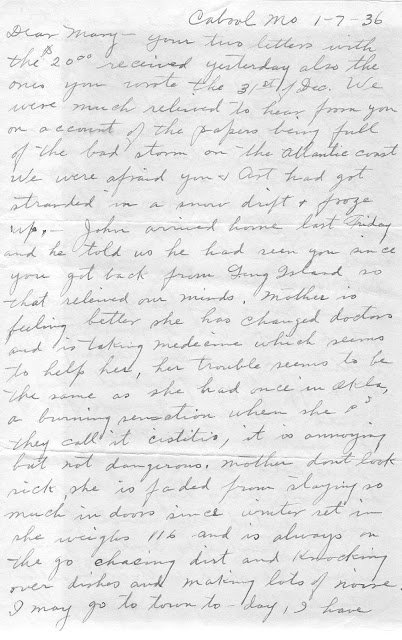 Cabool Mo 1-7-36
Dear Mary - your two letters with
the $20.00 received yesterday also the
ones you wrote the 31st of Dec. We
were much relieved to hear from you
on account of the papers being full
of the bad storm on the Atlantic coast
We were afraid you & Art had got
stranded in a snow drift & froze
up. - John arrived home last Friday
and he told us he had seen you since
you got back from Long Island so
that releived our minds. Mother is
feeling better she has changed doctors
and is taking medecine which seems
to help her, her trouble seems to be
the same as she had once in Okla,
a burning sensation when she P's
they call it cistitis, it is annoying
but not dangerous. Mother dont look
sick, she is faded from staying so
much indoors since winter set in
she weighs 116 and is always on
the go chasing dirt and knocking
over dishes and making lots of noise.
I may go to town to-day, I have